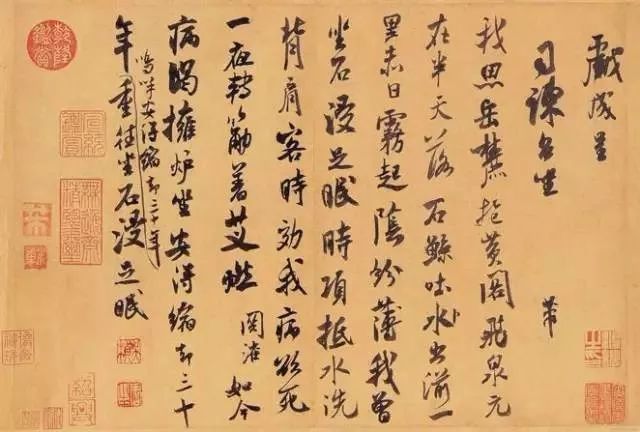 戲成呈
司諫台坐
芾
我思岳麓抱黄閣飛泉元
在半天落石鯨吐水出湔一
里赤日霧起陰紛薄我曾
坐石浸足眠時項抵水洗
背肩客時効我病欲死
一夜轉筋著艾燃 關灌 如今
病渴擁爐坐安得縮却三十
嗚呼安得縮却三十年
年重往坐石浸足眠